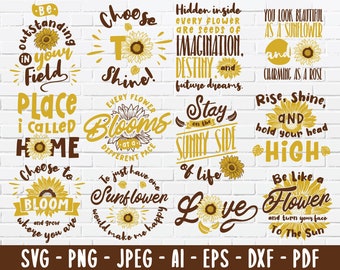 BE
outstanding
IN your
Field
Choose
TO
Shine!
Hidden inside
EVERY FLOWER
ARE SEEDS OF
IMAGINATION,
DESTINY and
future dreams.
YOU LOOK BEAUTIFUL
AS A SUNFLOWER
and
CHARMING AS A ROSE
PLACE
i CALLED
HOME
EVERY FLOWER
Blooms
AT A
DIFFERENT PACE
Stay
on the
SUNNY SIDE
of life
Rise, Shine,
AND
hold your head
HIGH
Choose to
BLOOM
and grow
where you are
To just have one
Sunflower
would make me happy
Love
Be Like a
Flower
and turn your face
To The Sun
SVG - PNG - JPEG - AI - EPS - DXF - PDF